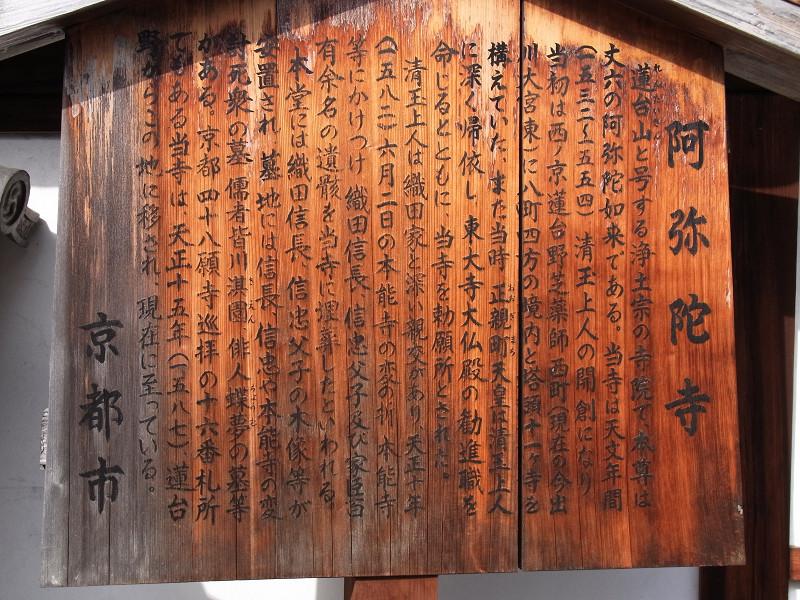 阿弥陀寺
蓮台山と号する浄土宗の寺院で、本尊は
丈六の阿弥陀如来である。当寺は天文年間
(一五三二〜一五五四)清玉上人の開創になり
当初は西ノ京蓮台野芝薬師西町(現在の今出
川大宮東)に八町四方の境内と塔頭十一ヶ寺を
構えていた。また当時、正親町天皇は清玉上人
に深く帰依し、東大寺大仏殿の勧進職を
命じるとともに、当寺を勅願所とされた。
清玉上人は織田家と深い親交があり、天正十年
(一五八二)六月二日の本能寺の変の折、本能寺
等にかけつけ、織田信長、信忠父子及び家臣百
有余名の遺骸を当寺に埋葬したといわれる。
本堂には織田信長、信忠父子の木像等が
安置され、墓地には信長、信忠や本能寺の変
討死衆の墓、儒者皆川淇園、俳人蝶夢の墓等
がある。京都四十八願寺巡拝の十六番札所
でもある当寺は、天正十五年(一五八七)、蓮台
野からこの地に移され、現在に至っている。
京都市